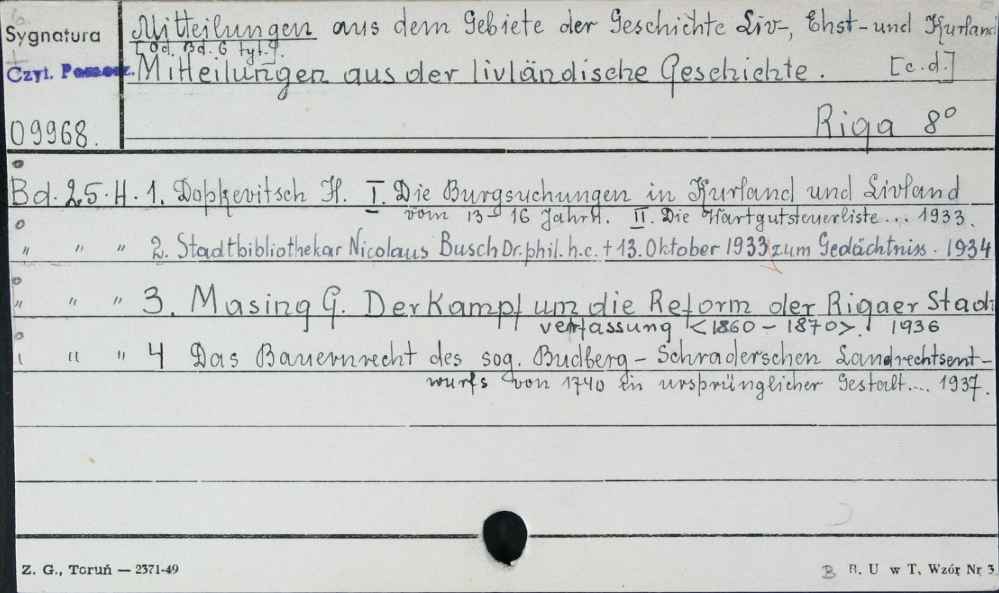 Sygnatura
Mitteilungen aus dem Gebiete der Geschichte Liv-, Ehst- und Kurland
[od. Bd. 6 tyt.]
Czyt. Pomorz.
Mitteilungen aus der livländische Geschichte. [c.d.]
09968.
Riga 8°
Bd. 25. H. 1. Dopkevitsch H. I. Die Burgsuchungen in Kurland und Livland
vom 13-16 Jahrh. II. Die Hartgutsteuerliste... 1933.
" " " 2. Stadtbibliothekar Nicolaus Busch Dr. phil. h.c. † 13. Oktober 1933 zum Gedächtniss. 1934
" " " 3. Masing G. Der Kampf um die Reform der Rigaer Stadt
verfassung <1860-1870>. 1936
" " " 4 Das Bauernrecht des sog. Budberg-Schraderschen Landrechtsent-
wurfs von 1740 in ursprünglicher Gestalt.... 1937.
Z. G., Toruń — 2371-49
B. U w T, Wzór Nr 3